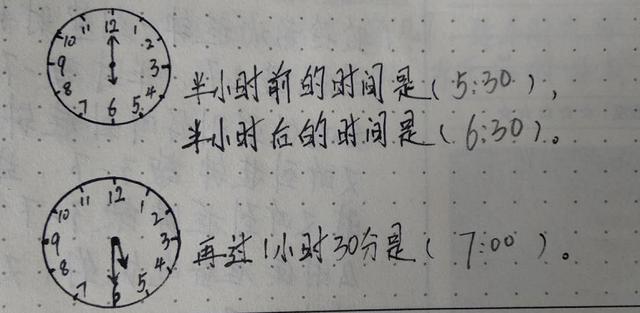 12
11 1
10 2
9 3
8 4
7 5
6
半小时前的时间是(5:30),
半小时后的时间是(6:30)。
12
11 1
10 2
9 3
8 4
7 5
6
再过1小时30分是(7:00)。